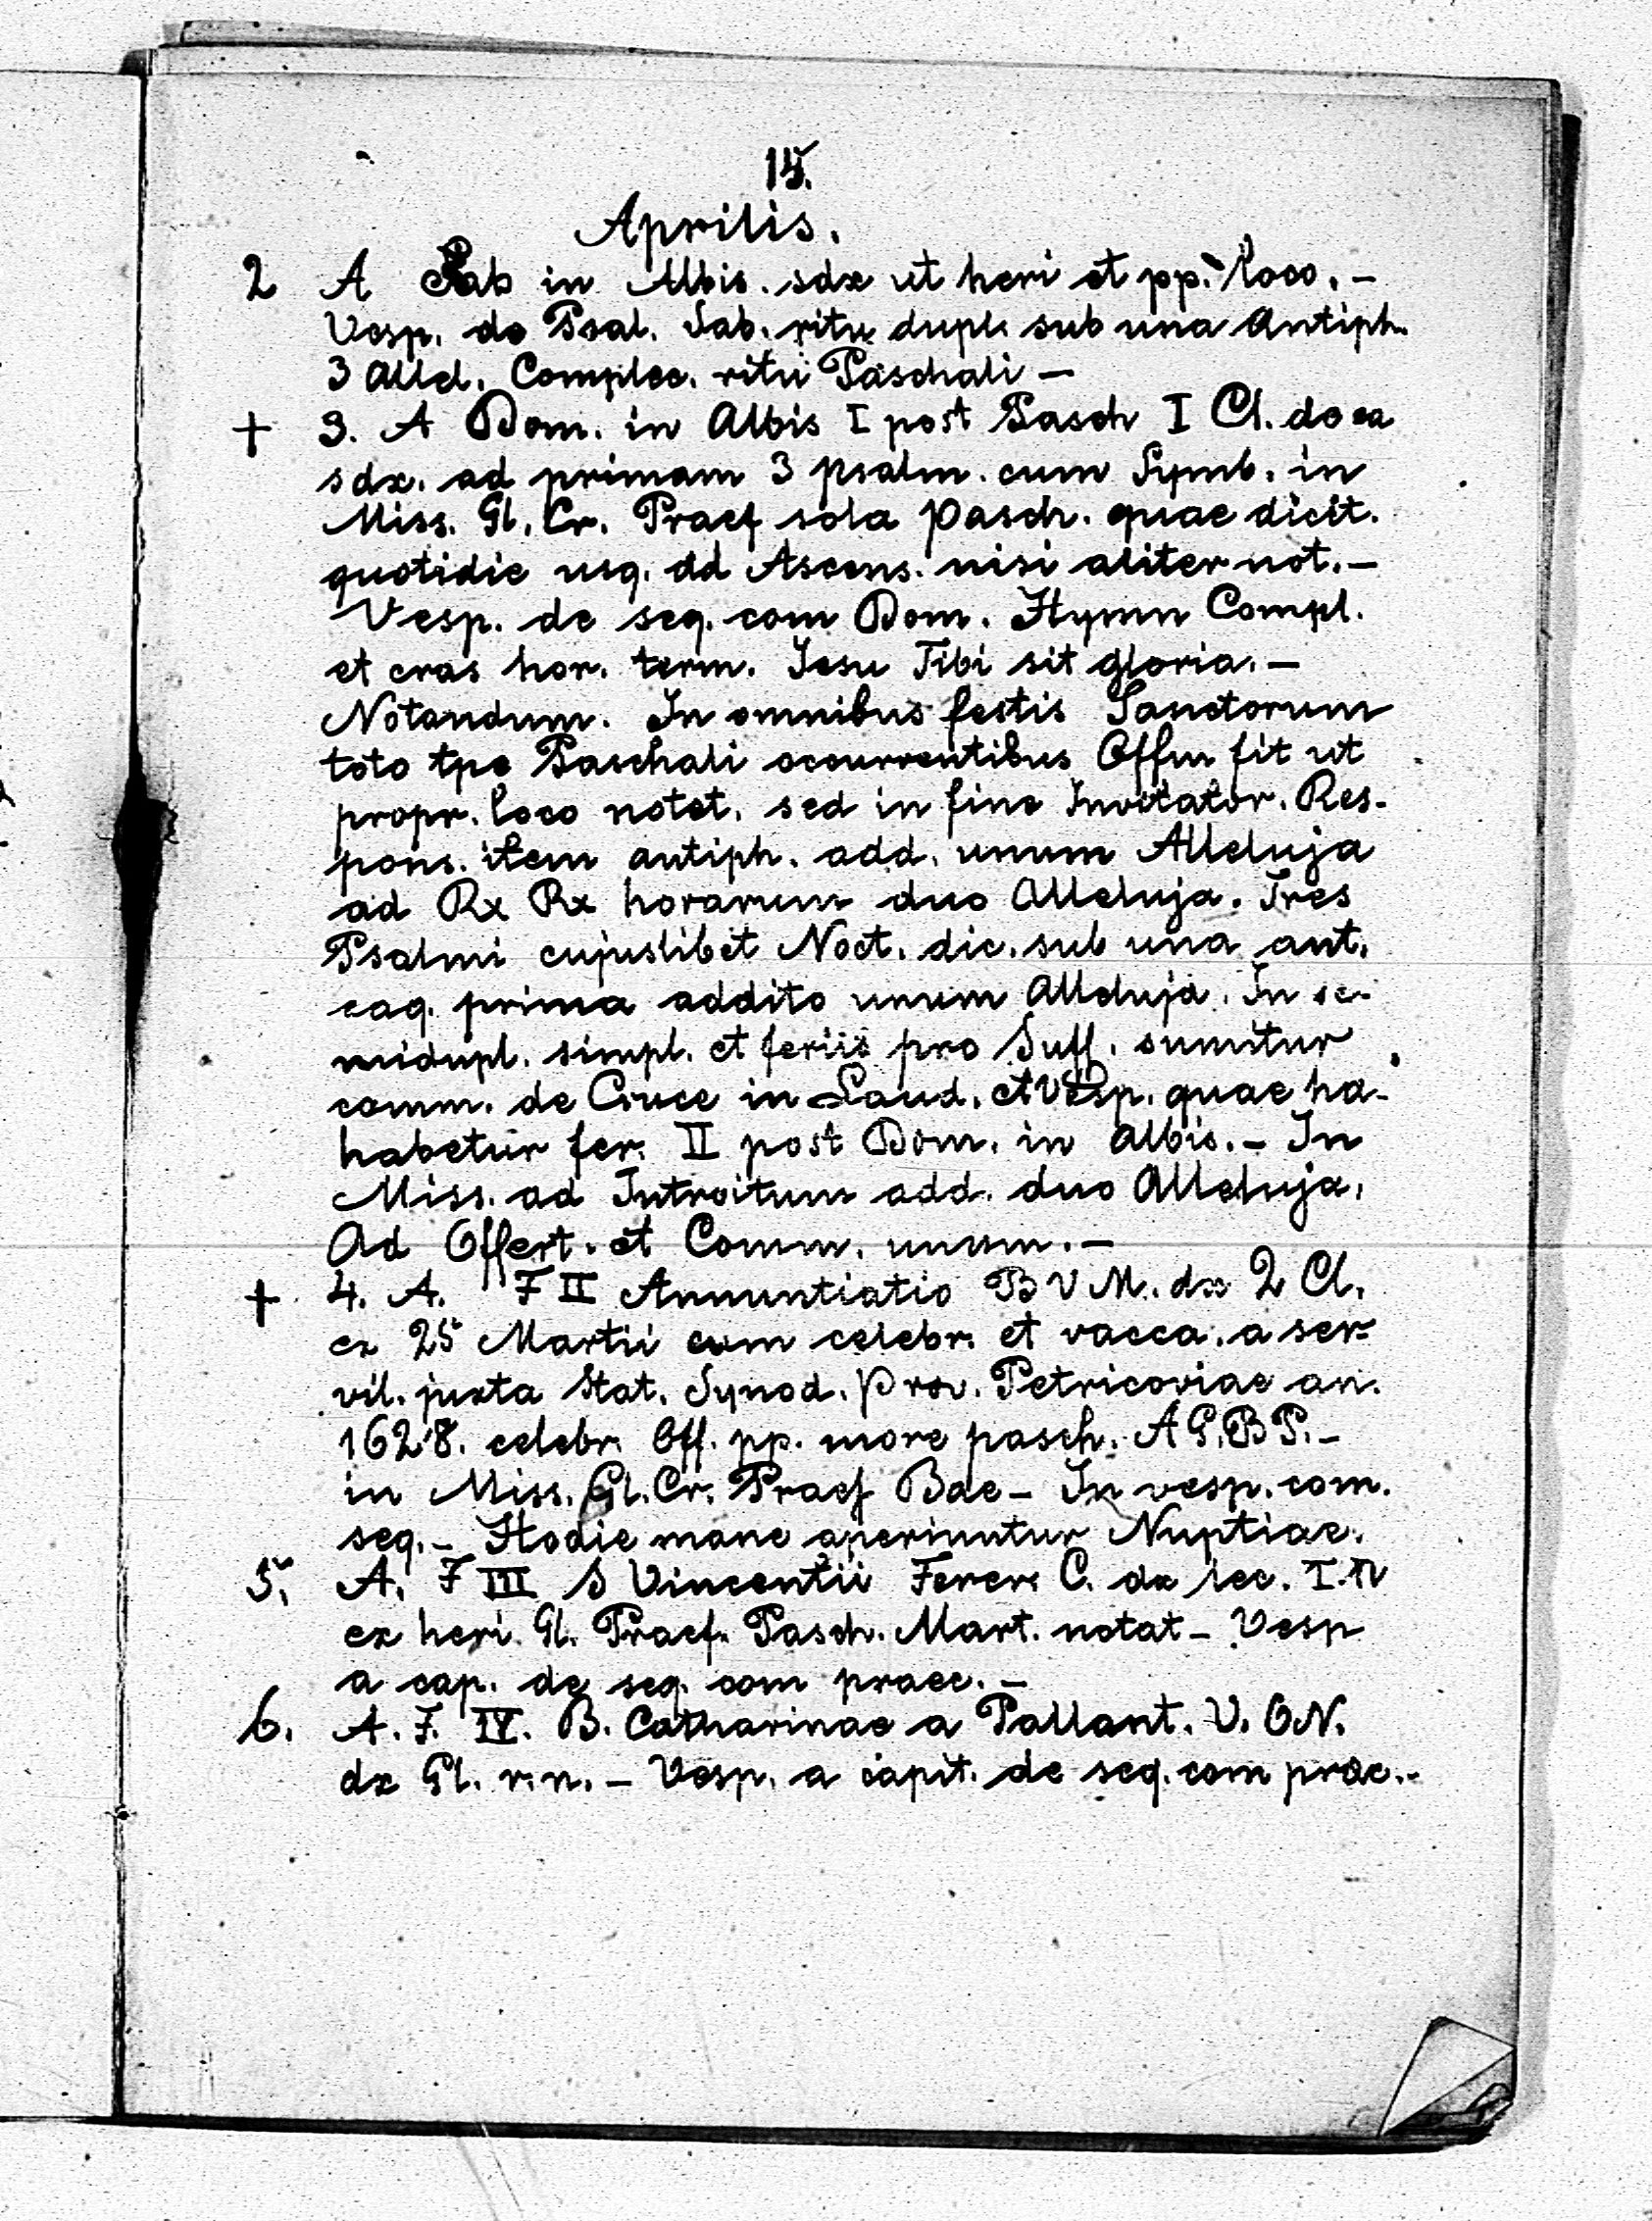 15.
Aprilis.
2 A Sab in Albis. sdx ut heri et pp. loco. –
Vesp. de Psal. Sab. ritu dupl. sub una Antiph.
3 Allel. Complec. ritu Paschali –
+ 3. A Dom. in Albis I post Pasch I Cl. de ea
sdx. ad primam 3 psalm. cum Symb. in
Miss. Gl. Cr. Praef sola pasch. quae dicit.
quotidie usq. ad Ascens. nisi aliter not. –
Vesp. de seq. com Dom. Hymn Compl.
et cras hor. term. Iesu Tibi sit gloria. –
Notandum. In omnibus festis Sanctorum
toto tpe Paschali occurrentibus Offm fit ut
propr. loco notet. sed in fine Invitator. Res-
pons. item antiph. add. unum Alleluja
ad Rx Rx horarum duo Alleluja. Tres
Psalmi cujuslibet Noct. dic. sub una ant.
eaq. prima addito unum Alleluja. In se-
midupl. simpl. et feriis pro Suff. sumitur
comm. de Cruce in Laud. et Vesp. quae ha-
habetur fer. II post Dom. in Albis. – In
Miss. ad Introitum add. duo Alleluja.
Ad Offert. et Comm. unum. –
+ 4. A. F II Annuntiatio B V M. dx 2 Cl.
ex 25 Martii cum celebr. et vacca. a ser-
vil. juxta Stat. Synod. Prov. Petricoviae an.
1628. celebr. Off. pp. more pasch. A P. B P. –
in Miss. Gl. Cr. Praef Bae – In vesp. com.
seq. – Hodie mane aperiuntur Nuptiae.
5. A. F III S Vincentii Ferer. C. dx lec. I. N
ex heri. Gl. Praef. Pasch. Mart. notat – Vesp
a cap. de seq. com praec. –
6. A. F. IV. B. Catharinae a Pallant. V. O N.
dx Gl. r. n. – Vesp. a capit. de seq. com prae. –